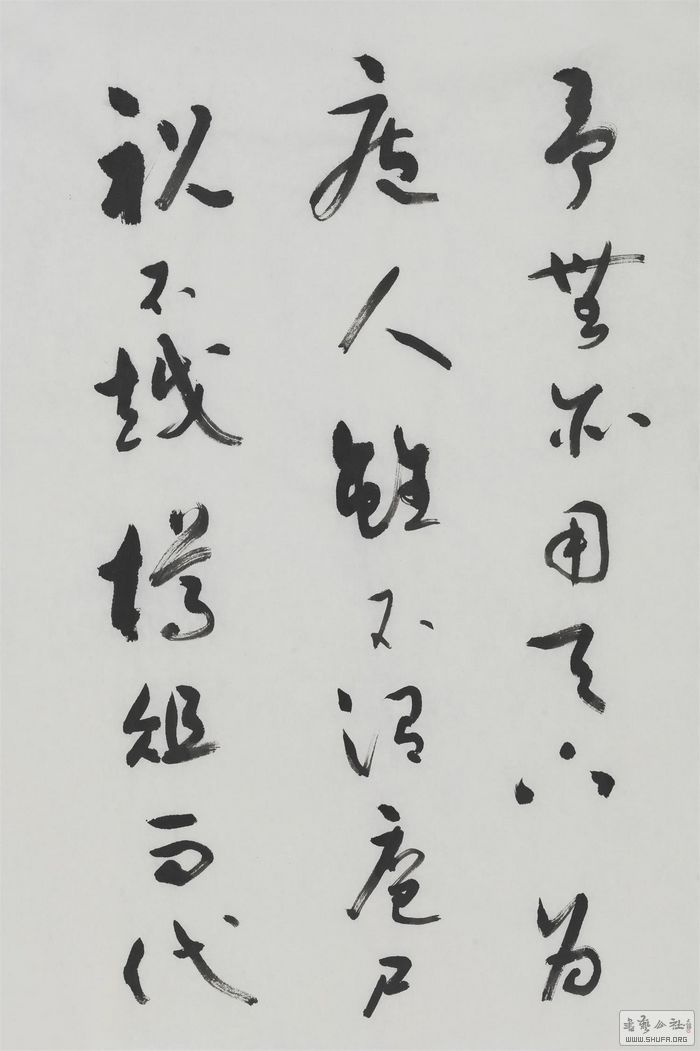 予無所用天下為
庖人雖不治庖尸
祝不越樽俎而代
書藝公社
WWW.SHUFA.ORG